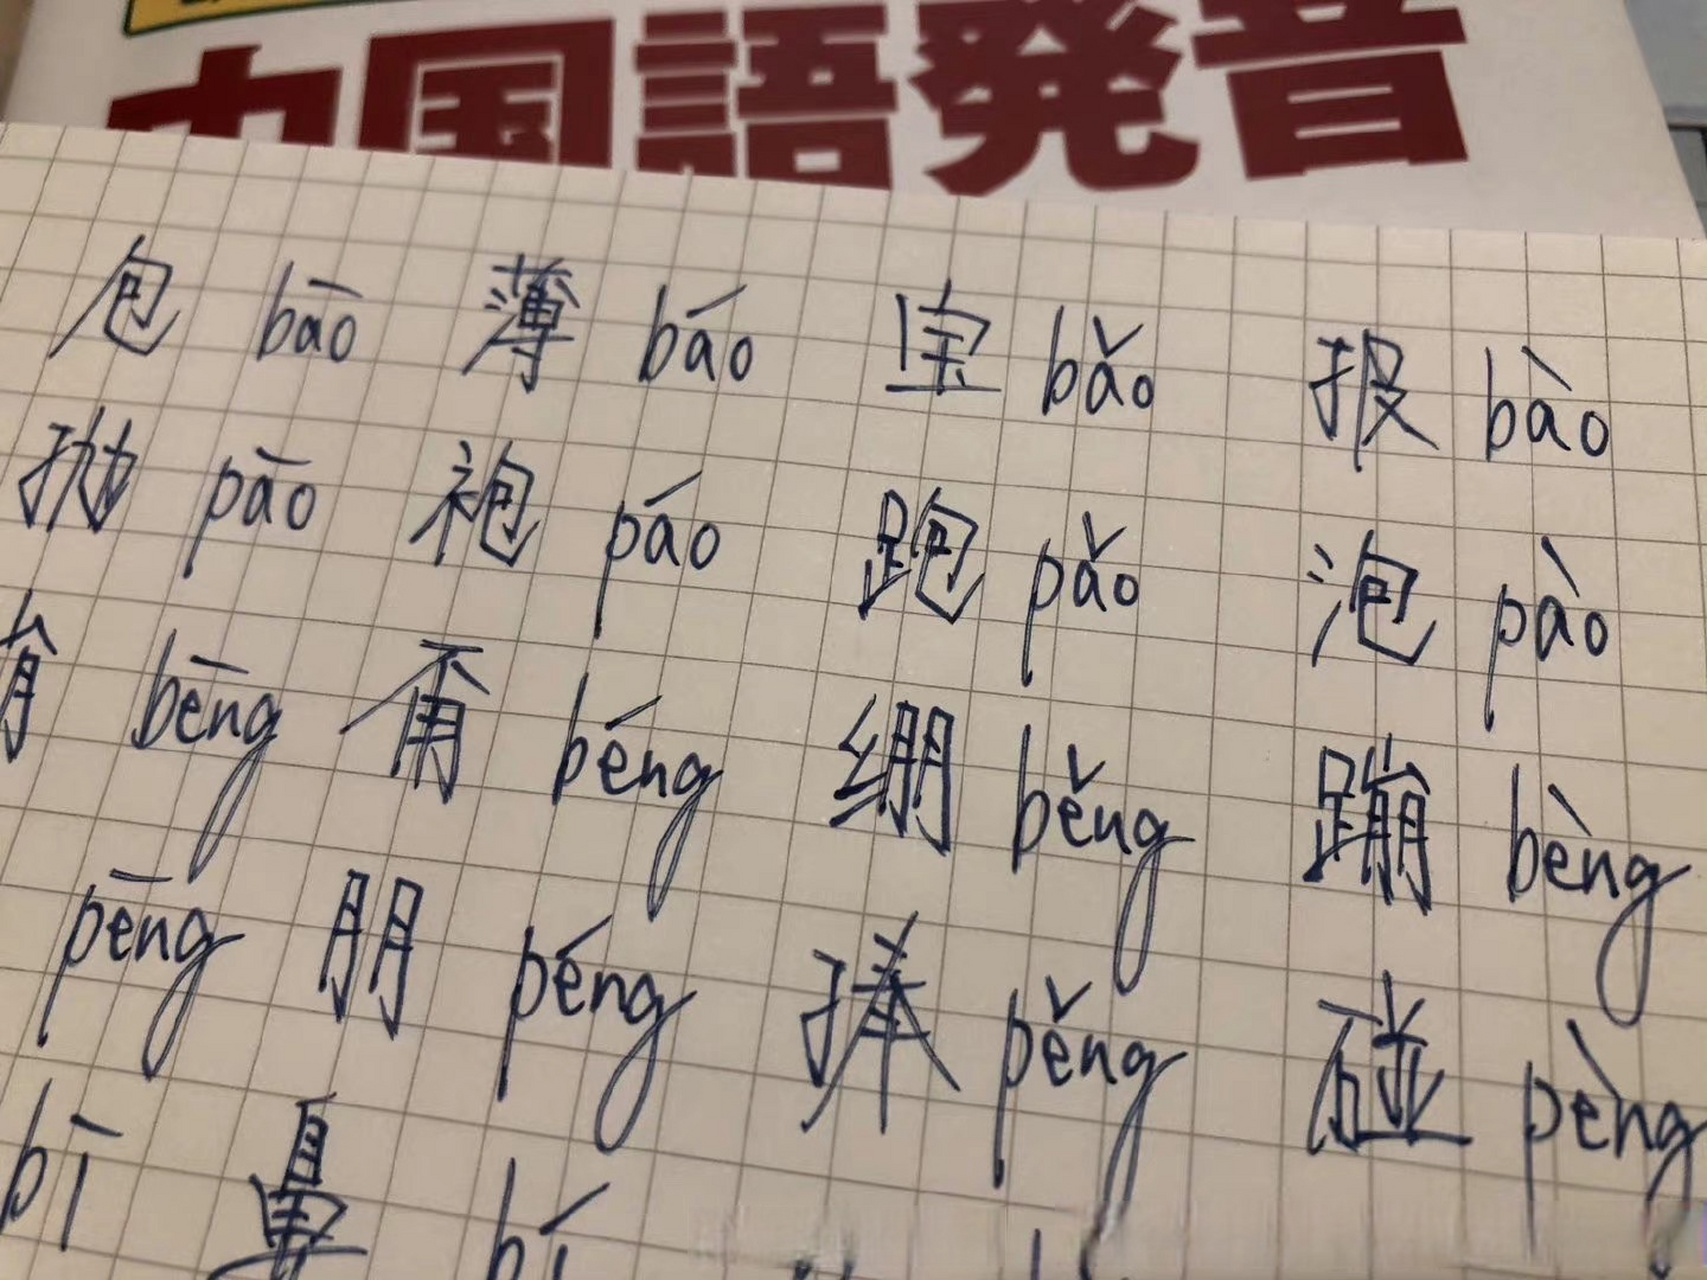 中国語発音
包 bāo 薄 báo 宝 bǎo 报 bào
抛 pāo 袍 páo 跑 pǎo 泡 pào
bēng 甭 béng 绷 běng 蹦 bèng
pēng 朋 péng 捧 pěng 碰 pèng
bī 鼻 bí